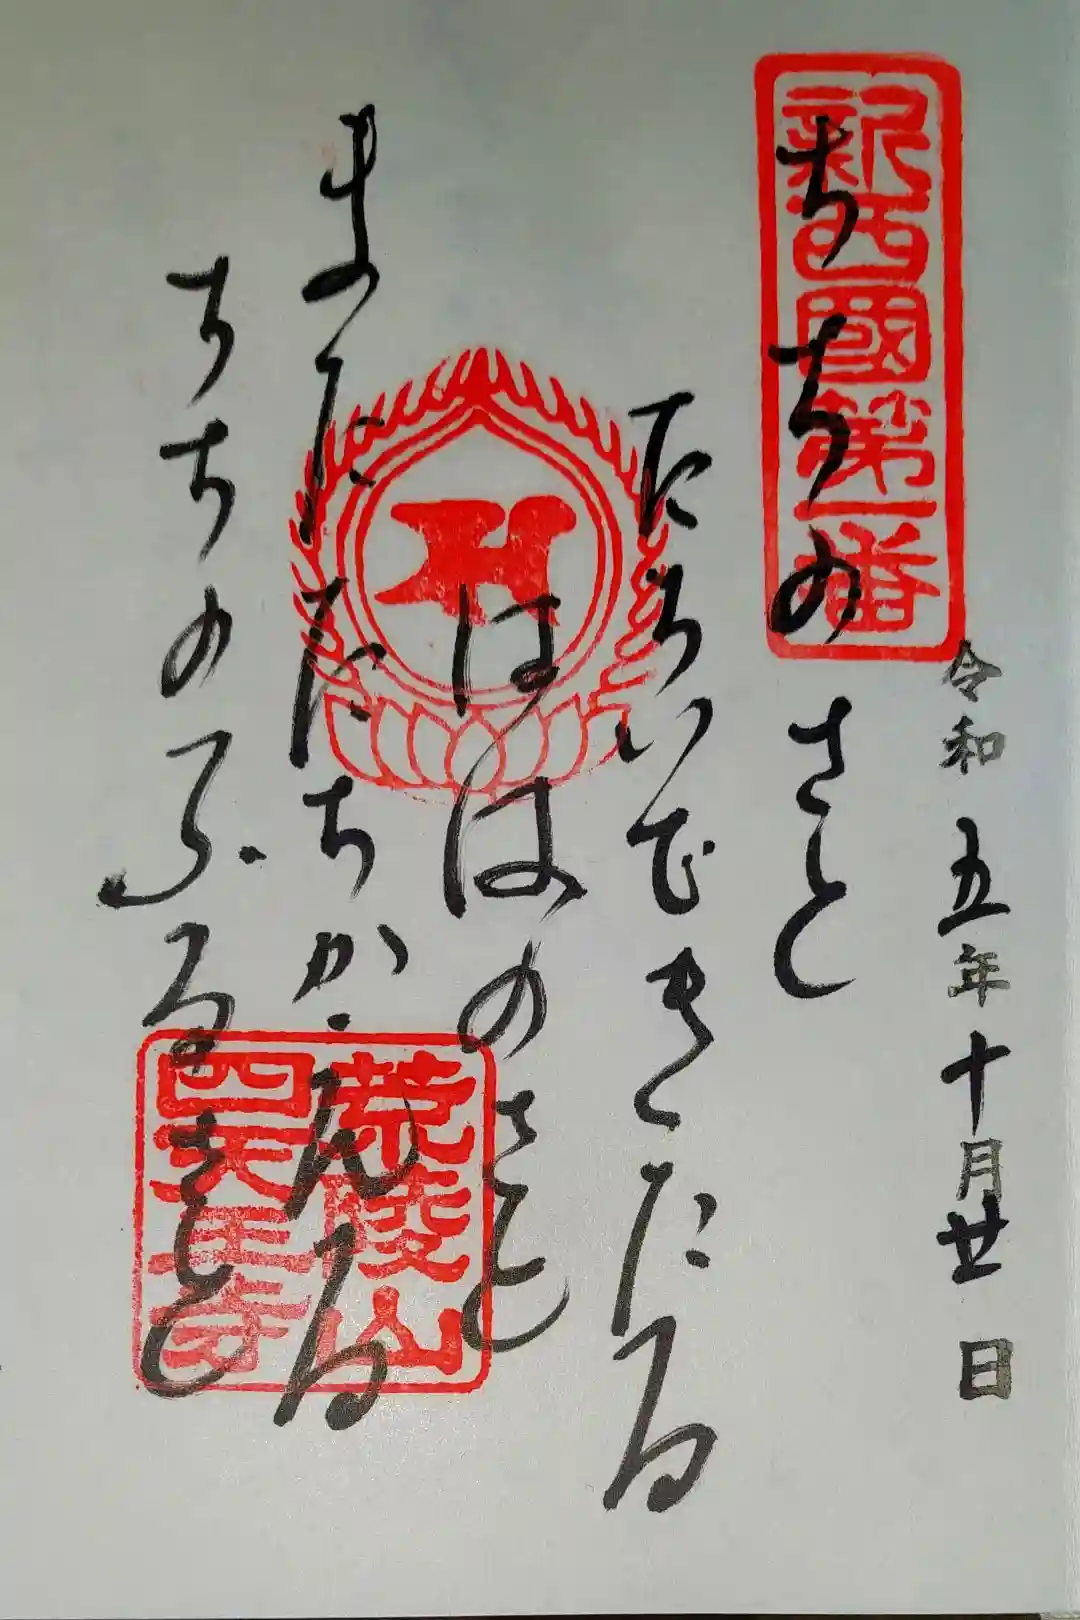 新西國第一番
令和五年十月廿日
ちちのさと
たちいできたる
ははのさと
またたちかへる
ちちのふるさと
荒陵山
四天王寺